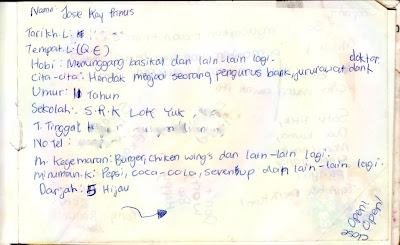 Nama: Jose Kay Prinus
Tarikh.L:
Tempat.L: (Q.E)
Hobi: Menunggang basikal dan lain-lain lagi.
Cita-cita: Hendak menjadi seorang pengurus bank, jururawat dan doktor.
Umur: 11 Tahun
Sekolah: S.R.K LOK YUK
T. Tinggal
No Tel:
M. Kegemaran: Burger, chicken wings dan lain-lain lagi.
Minuman.k: Pepsi, coca-cola, sevenup dan lain-lain lagi.
Darjah: 5 Hijau
Open!
Open!
close